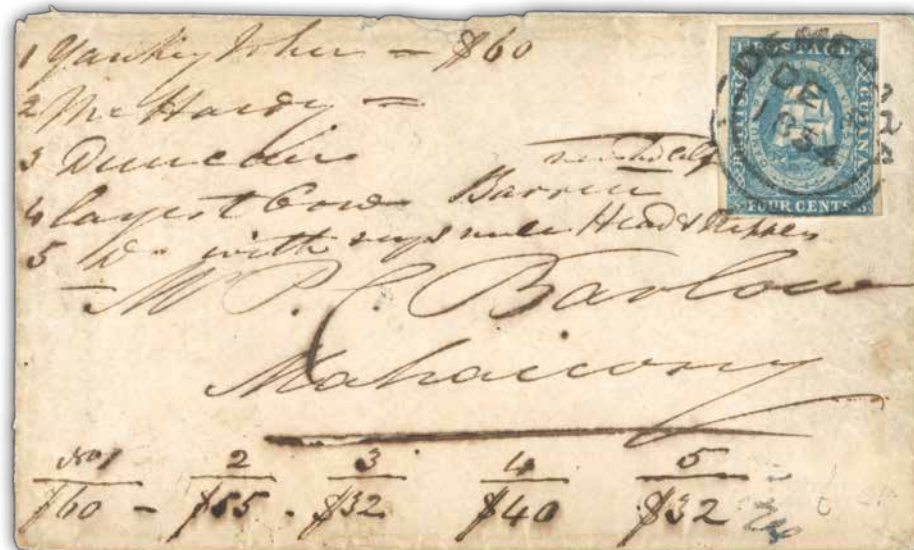 1 Yankey John = $60
2 McHardy =
3 Duncan
4 largest Cow Barren
5 Do with Head &
Mr P. C. Barlow
Mahaicony
No 1 2 3 4 5
$60 - $55 . $32 $40 $32
POSTAGE
BRITISH
GUIANA
FOUR CENTS
DEMERARA
DE
1854